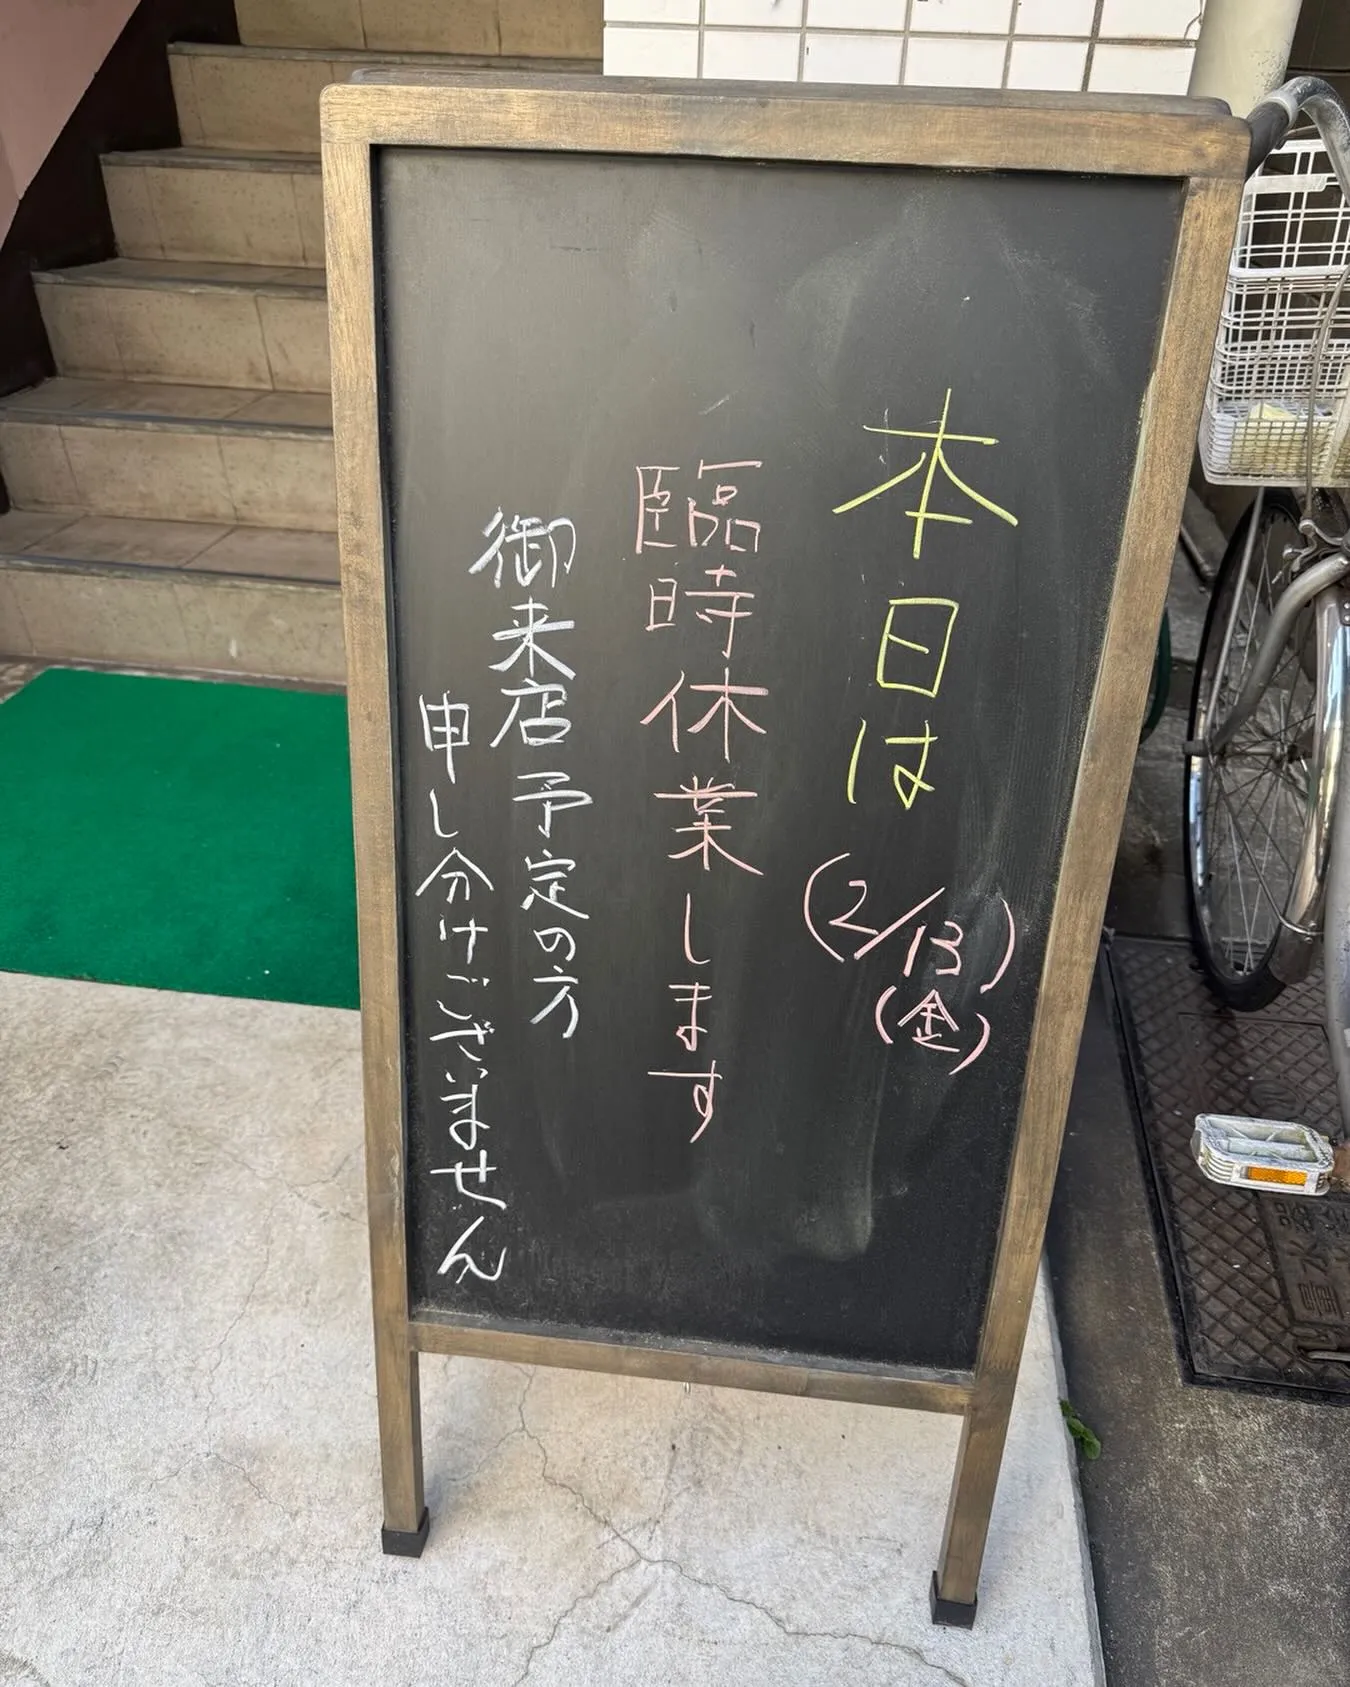 本日は
(2/13)
(金)
臨時休業します
御来店予定の方
申し分けございません